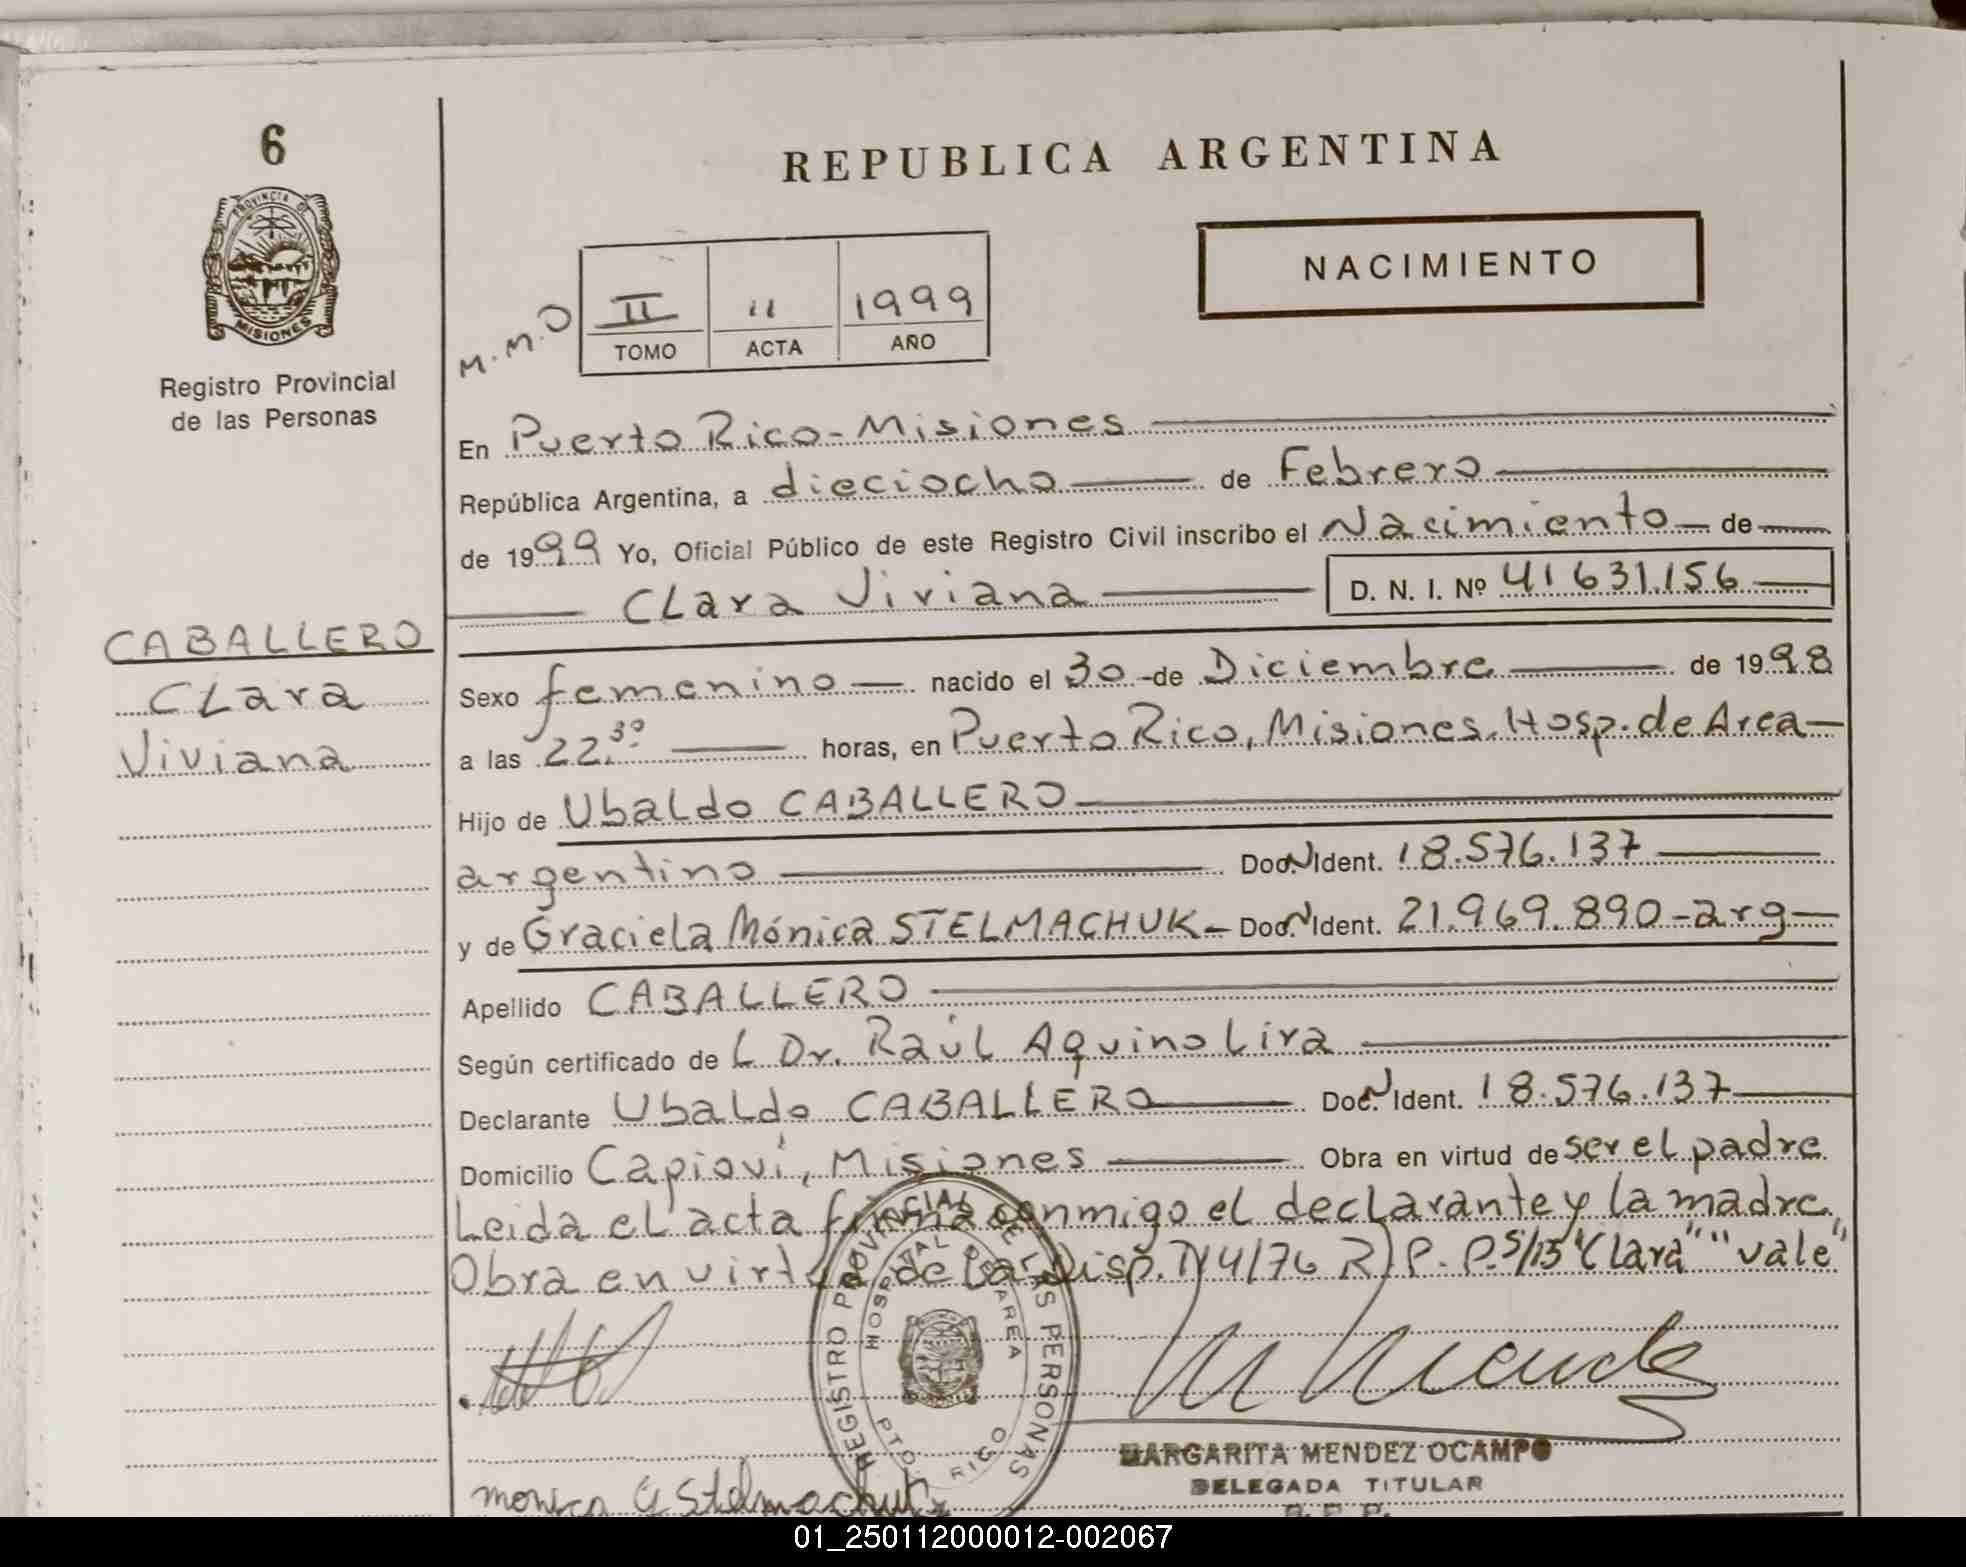 6
REPUBLICA ARGENTINA
PROVINCIA DE
MISIONES
Registro Provincial
de las Personas
NACIMIENTO
M.M.O
II 11 1999
TOMO ACTA AÑO
En Puerto Rico - Misiones
República Argentina, a dieciocho de Febrero
de 1999 Yo, Oficial Público de este Registro Civil inscribo el Nacimiento de
Clara Viviana D. N. I. Nº 41631.156
CABALLERO
Clara
Viviana
Sexo femenino nacido el 30 - de Diciembre de 1998
a las 22:30 horas, en Puerto Rico, Misiones, Hosp. de Area
Hijo de Ubaldo CABALLERO
argentino Doc. N Ident. 18.576.137
y de Graciela Mónica STELMACHUK - Doc. N Ident. 21.969.890 - arg
Apellido CABALLERO
Según certificado de L Dr. Raúl Aquino Lira
Declarante Ubaldo CABALLERO Doc. N Ident. 18.576.137
Domicilio Capioví, Misiones Obra en virtud de ser el padre
Leida el acta firma conmigo el declarante y la madre.
Obra en virtud de la Disp. N 4/76 R.P.P. S/B "Clara" "vale"
REGISTRO PROVINCIAL DE LAS PERSONAS
HOSPITAL DE AREA
PTO. RICO
MARGARITA MENDEZ OCAMPO
DELEGADA TITULAR
R.P.P.
Monica G Stelmachuk
01_250112000012-002067